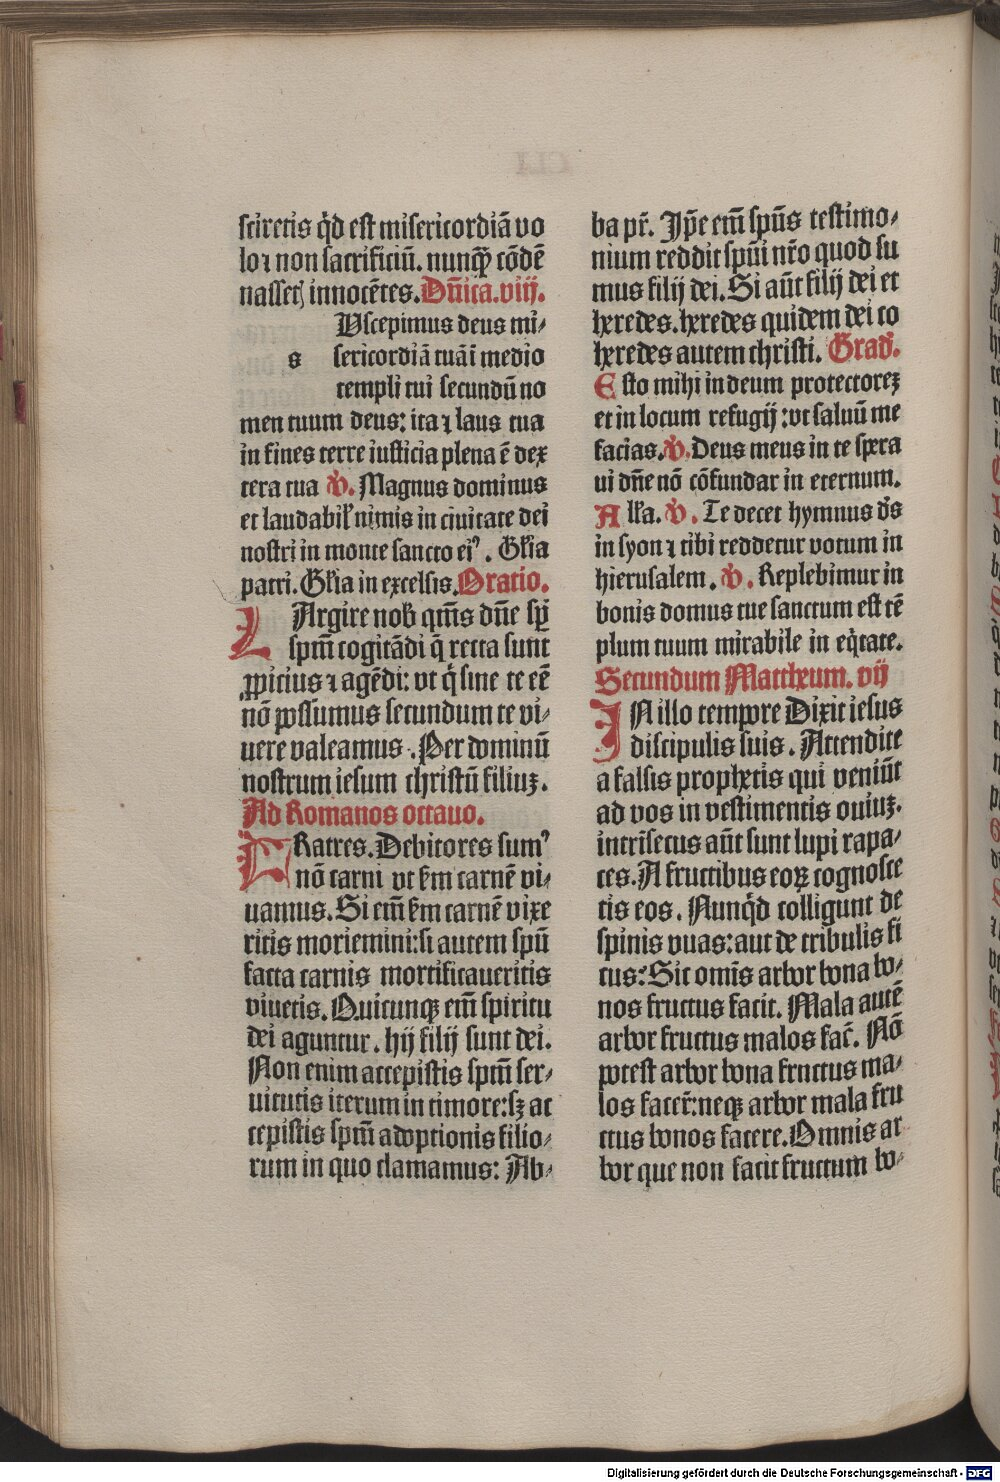 sciretis q̇d est misericordiā uo
loꝛ non sacrificiū. nunqꝫ cōdē
nassetꝭ innocētes. Dñica.viij.
Uscepimus deus mi⸗
s sericordiā tuā ī medio
templi tui secundū no
men tuum deus: ita ⁊ laus tua
in fines terre iusticia plena ē dex
tera tua ℣. Magnus dominus
et laudabil' nimis in ciuitate dei
nostri in monte sancto eiꝰ. Gl'ia
patri. Gl'ia in excelsis. Oratio.
LArgire nob̄ qm̄s dñe sp̄
spm̄ cogitādi q̄ recta sunt
ꝓpicius ⁊ agēdi: ut q̇ sine te eē
nō possumus secundum te vi⸗
uere valeamus. Per dominū
nostrum iesum christū filiuꝫ.
Ad Romanos octauo.
FRatres. Debitores sumꝰ
nō carni vt km̄ carnē vi⸗
uamus. Si em̄ km̄ carnē vixe
ritis moriemini: si autem spū
facta carnis mortificaueritis
viuetis. Quicunqꝫ em̄ spiritu
dei aguntur. hij filij sunt dei.
Non enim accepistis spm̄ ser⸗
uitutis iterum in timore: sꝫ ac
cepistis spm̄ adoptionis filio⸗
rum in quo clamamus: Ab⸗
ba pr̄. Ip̄e em̄ spūs testimo⸗
nium reddit spūi nr̄o quod su
mus filij dei. Si aūt filij dei et
heredes. heredes quidem dei co
heredes autem christi. Grad'.
Esto mihi in deum protectoreꝫ
et in locum refugij: vt saluū me
facias. ℣. Deus meus in te spera
ui dñe nō cōfundar in eternum.
All'a. ℣. Te decet hymnus d's
in syon ⁊ tibi reddetur votum in
hierusalem. ℣. Replebimur in
bonis domus tue sanctum est tē
plum tuum mirabile in eq̇tate.
Secundum Mattheum. vij
IN illo tempore Dixit iesus
discipulis suis. Attendite
a falsis prophetis qui veniūt
ad vos in vestimentis ouiuꝫ.
intrīsecus aūt sunt lupi rapa⸗
ces. A fructibus eoꝝ cognosce
tis eos. Nunq̇d colligunt de
spinis vuas: aut de tribulis fi
cus? Sic omīs arbor bona bo⸗
nos fructus facit. Mala autē
arbor fructus malos fac̄. Nō
potest arbor bona fructus ma⸗
los facer̄: neqꝫ arbor mala fru
ctus bonos facere. Omnis ar
bor que non facit fructum bo⸗
Digitalisierung gefördert durch die Deutsche Forschungsgemeinschaft - DFG